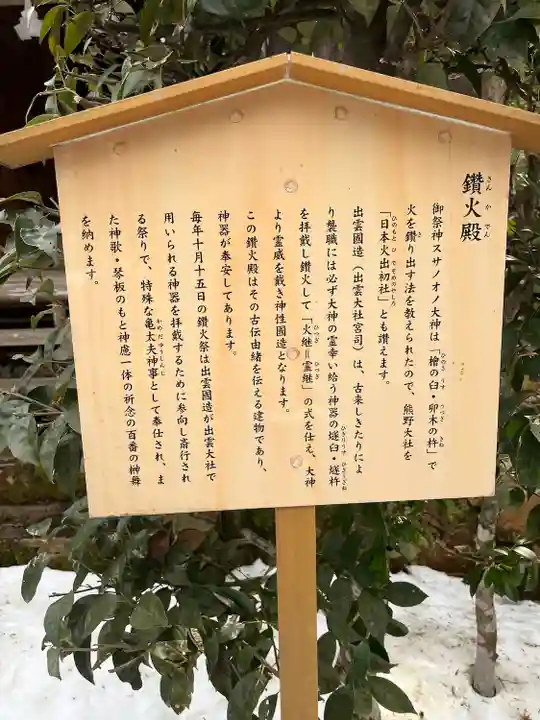 鑽火殿
さんかでん
御祭神スサノオノ大神は「檜の臼・卯木の杵」で
火を鑽り出す法を教えられたので、熊野大社を
「日本火出初社」とも讃えます。
出雲國造（出雲大社宮司）は、古来しきたりによ
り襲職には必ず大神の霊幸い給う神器の燧臼・燧杵
を拝戴し鑽火して「火継＝霊継」の式を仕え、大神
より霊威を戴き神性國造となります。
この鑽火殿はその古伝由緒を伝える建物であり、
神器が奉安してあります。
毎年十月十五日の鑽火祭は出雲國造が出雲大社で
用いられる神器を拝戴するために参向し斎行され
る祭りで、特殊な亀太夫神事として奉仕され、ま
た神歌・琴板のもと神慮一体の祈念の百番の榊舞
を納めます。